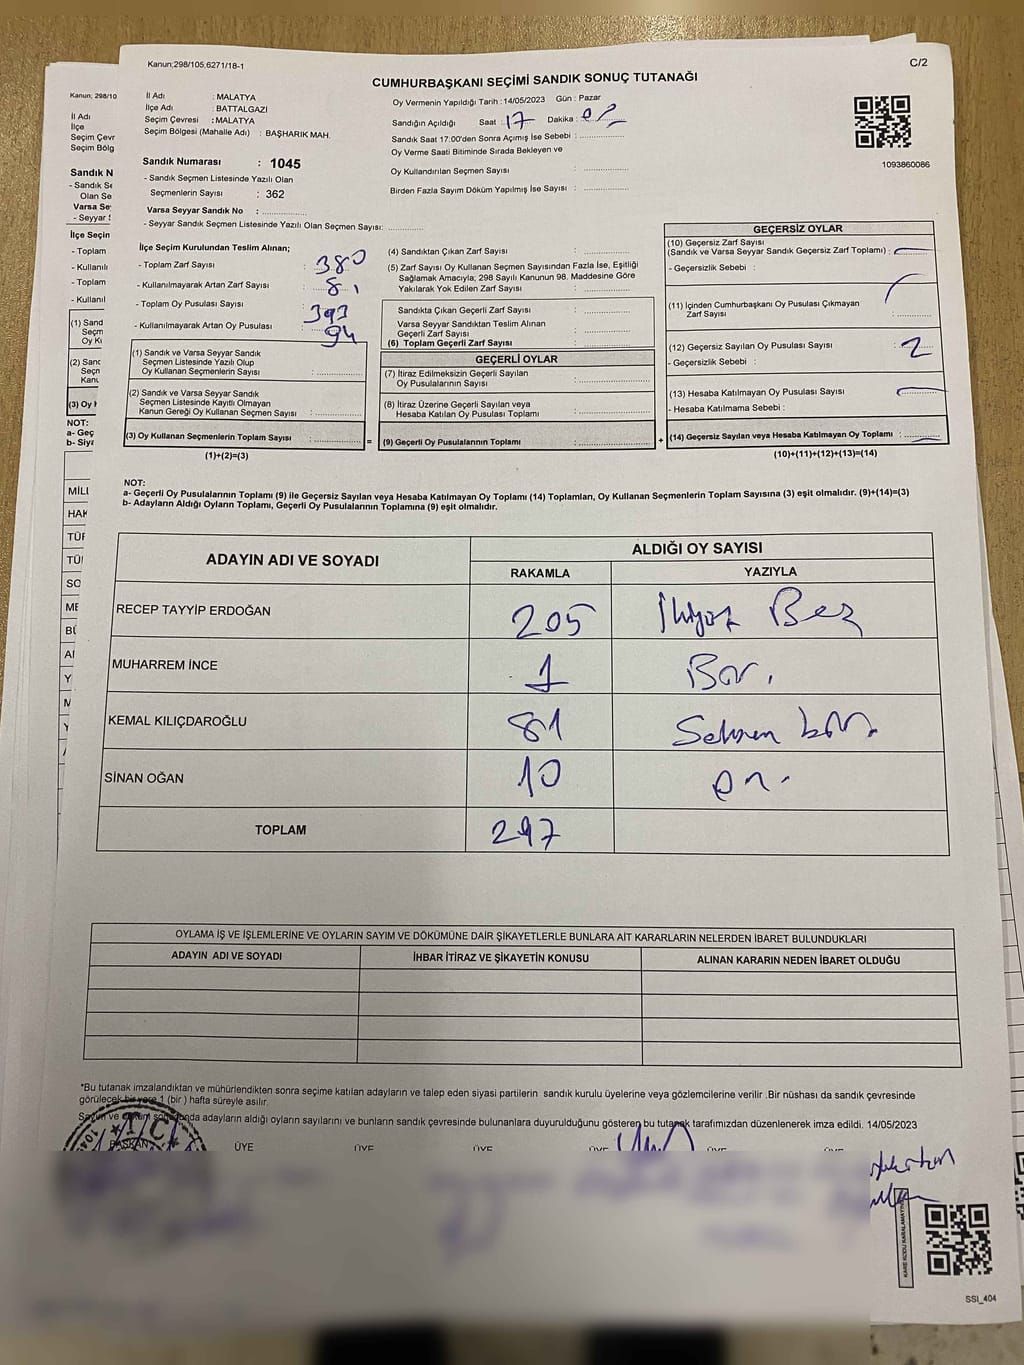 Kanun;298/105,6271/18-1
C/2
CUMHURBAŞKANI SEÇİMİ SANDIK SONUÇ TUTANAĞI
İl Adı : MALATYA
İlçe Adı : BATTALGAZİ
Seçim Çevresi : MALATYA
Seçim Bölgesi (Mahalle Adı) : BAŞHARIK MAH.
Sandık Numarası : 1045
- Sandık Seçmen Listesinde Yazılı Olan
Seçmenlerin Sayısı : 362
Varsa Seyyar Sandık No : ..............
- Seyyar Sandık Seçmen Listesinde Yazılı Olan Seçmen Sayısı: ............
Oy Vermenin Yapıldığı Tarih : 14/05/2023 Gün : Pazar
Sandığın Açıldığı Saat : 17 Dakika :
Sandık Saat 17:00'den Sonra Açımış İse Sebebi : ..............
Oy Verme Saati Bitiminde Sırada Bekleyen ve
Oy Kullandırılan Seçmen Sayısı : ..............
Birden Fazla Sayım Döküm Yapılmış İse Sayısı : ..............
1093860086
İlçe Seçim Kurulundan Teslim Alınan;
- Toplam Zarf Sayısı : 380
- Kullanılmayarak Artan Zarf Sayısı : 81
- Toplam Oy Pusulası Sayısı : 393
- Kullanılmayarak Artan Oy Pusulası : 94
(1) Sandık ve Varsa Seyyar Sandık
Seçmen Listesinde Yazılı Olup
Oy Kullanan Seçmenlerin Sayısı : ..............
(2) Sandık ve Varsa Seyyar Sandık
Seçmen Listesinde Kayıtlı Olmayan
Kanun Gereği Oy Kullanan Seçmen Sayısı : ..............
(3) Oy Kullanan Seçmenlerin Toplam Sayısı : .............. =
(1)+(2)=(3)
(4) Sandıktan Çıkan Zarf Sayısı : ..............
(5) Zarf Sayısı Oy Kullanan Seçmen Sayısından Fazla İse, Eşitliği
Sağlamak Amacıyla; 298 Sayılı Kanunun 98. Maddesine Göre
Yakılarak Yok Edilen Zarf Sayısı : ..............
Sandıkta Çıkan Geçerli Zarf Sayısı : ..............
Varsa Seyyar Sandıktan Teslim Alınan
Geçerli Zarf Sayısı : ..............
(6) Toplam Geçerli Zarf Sayısı : ..............
GEÇERLİ OYLAR
(7) İtiraz Edilmeksizin Geçerli Sayılan
Oy Pusulalarının Sayısı : ..............
(8) İtiraz Üzerine Geçerli Sayılan veya
Hesaba Katılan Oy Pusulası Toplamı : ..............
(9) Geçerli Oy Pusulalarının Toplamı : .............. +
GEÇERSİZ OYLAR
(10) Geçersiz Zarf Sayısı
(Sandık ve Varsa Seyyar Sandık Geçersiz Zarf Toplamı) :
- Geçersizlik Sebebi :
(11) İçinden Cumhurbaşkanı Oy Pusulası Çıkmayan
Zarf Sayısı : ..............
(12) Geçersiz Sayılan Oy Pusulası Sayısı : 2
- Geçersizlik Sebebi :
(13) Hesaba Katılmayan Oy Pusulası Sayısı :
- Hesaba Katılmama Sebebi :
(14) Geçersiz Sayılan veya Hesaba Katılmayan Oy Toplamı :
(10)+(11)+(12)+(13)=(14)
NOT:
a- Geçerli Oy Pusulalarının Toplamı (9) ile Geçersiz Sayılan veya Hesaba Katılmayan Oy Toplamı (14) Toplamları, Oy Kullanan Seçmenlerin Toplam Sayısına (3) eşit olmalıdır. (9)+(14)=(3)
b- Adayların Aldığı Oyların Toplamı, Geçerli Oy Pusulalarının Toplamına (9) eşit olmalıdır.
ADAYIN ADI VE SOYADI
ALDIĞI OY SAYISI
RAKAMLA YAZIYLA
RECEP TAYYİP ERDOĞAN 205 İkiyüz Beş
MUHARREM İNCE 1 Bir.
KEMAL KILIÇDAROĞLU 81 Seksen bir.
SİNAN OĞAN 10 on.
TOPLAM 297
OYLAMA İŞ VE İŞLEMLERİNE VE OYLARIN SAYIM VE DÖKÜMÜNE DAİR ŞİKAYETLERLE BUNLARA AİT KARARLARIN NELERDEN İBARET BULUNDUKLARI
ADAYIN ADI VE SOYADI İHBAR İTİRAZ VE ŞİKAYETİN KONUSU ALINAN KARARIN NEDEN İBARET OLDUĞU
*Bu tutanak imzalandıktan ve mühürlendikten sonra seçime katılan adayların ve talep eden siyasi partilerin sandık kurulu üyelerine veya gözlemcilerine verilir .Bir nüshası da sandık çevresinde
görülecek bir yere 1 (bir ) hafta süreyle asılır.
Sayım ve döküm sonunda adayların aldığı oyların sayılarını ve bunların sandık çevresinde bulunanlara duyurulduğunu gösteren bu tutanak tarafımızdan düzenlenerek imza edildi. 14/05/2023
BAŞKAN ÜYE ÜYE ÜYE ÜYE ÜYE ÜYE
T.C.
KARE KODU KARALAMAYINIZ
SSI_404
Kanun; 298/10
İl Adı
İlçe
Seçim Çevr
Seçim Bölg
Sandık N
- Sandık Se
Olan Se
Varsa Se
- Seyyar
İlçe Seçin
- Toplam
- Kullanılı
- Toplam
- Kullanıl
(1) Sand
Seçm
Oy Kı
(2) Sanc
Seçn
Kanı
(3) Oy
NOT:
a- Geç
MİLL
HAK